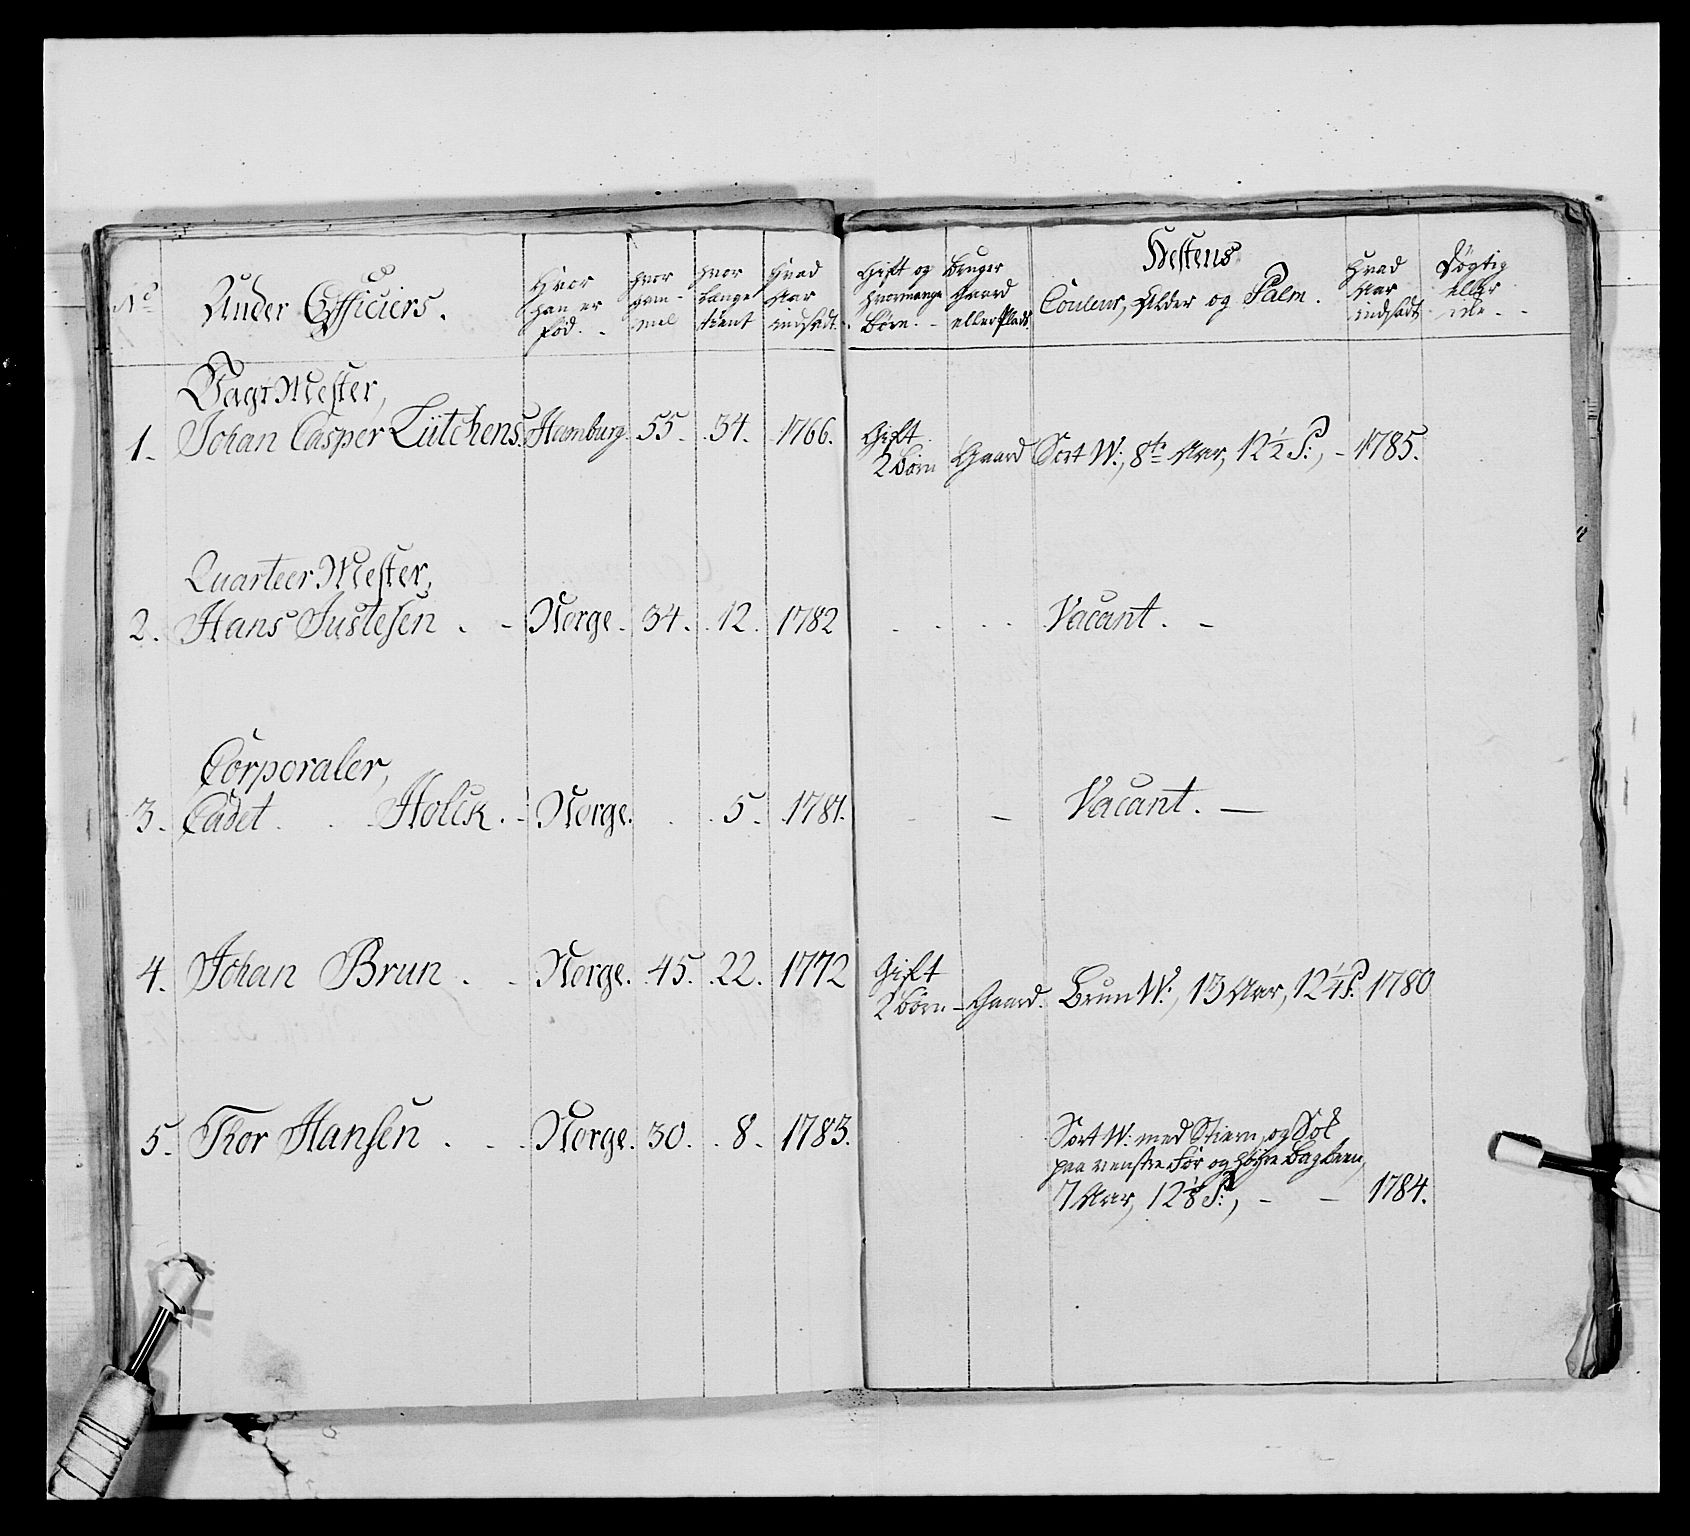 No
Under Officiers.
Hvor
han er
fød.
hvor
gam-
mel
hvor
længe
tient
Hvad
Aar
indsadt.
Gift og
hvormange
Børn.
Bruger
Gaard
eller Plads
Hestens
Couleur, Alder og Palm.
Hvad
Aar
indsadt
Døgtig
eller
ikke
Vagt Mester,
1. Johan Casper Lütchens. Hamburg. 55. 34. 1766. Gift
2 Børn Gaard Sort W:, 8te Aar, 12½ P:, - 1785.
Quarteer Mester,
2. Hans Justesen . - Norge. 34. 12. 1782 . . . . Vacant. -
Corporaler,
3. Cadet . . Holck. - Norge. . . 5. 1781. - Vacant. -
4. Johan Brun . - Norge. 45. 22. 1772 Gift
2 Børn - Gaard. Brun W:, 13 Aar, 12¼ P. 1780
5. Thor Hansen . - Norge. 30. . 8. 1783.
Sort W: med Stiern, og Sok
paa venstre For og høyre Bagbeen,
7 Aar, 12⅛ P:, - - 1784.